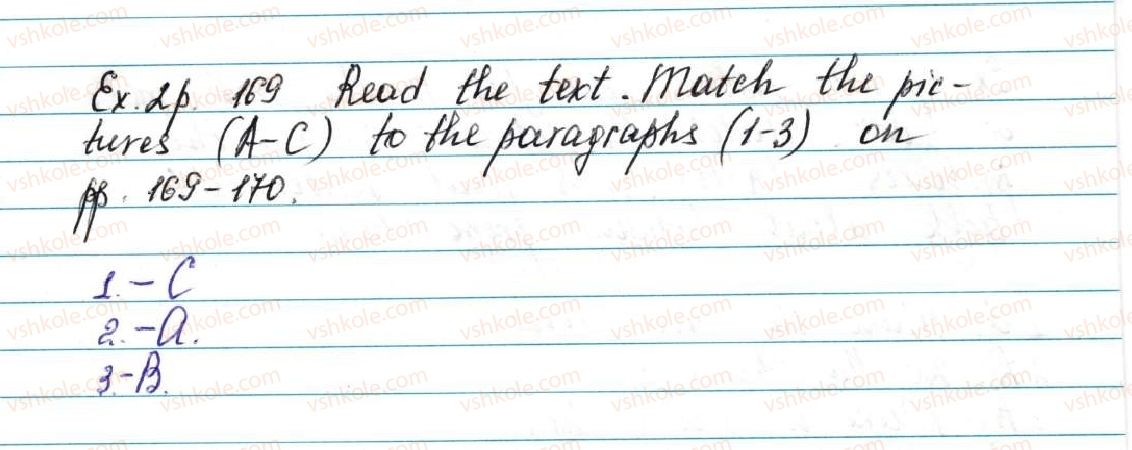 Ex. 2 p. 169 Read the text. Match the pic-
tures (A-C) to the paragraphs (1-3) on
pp. 169-170.
1. - C
2. - A.
3. - B.